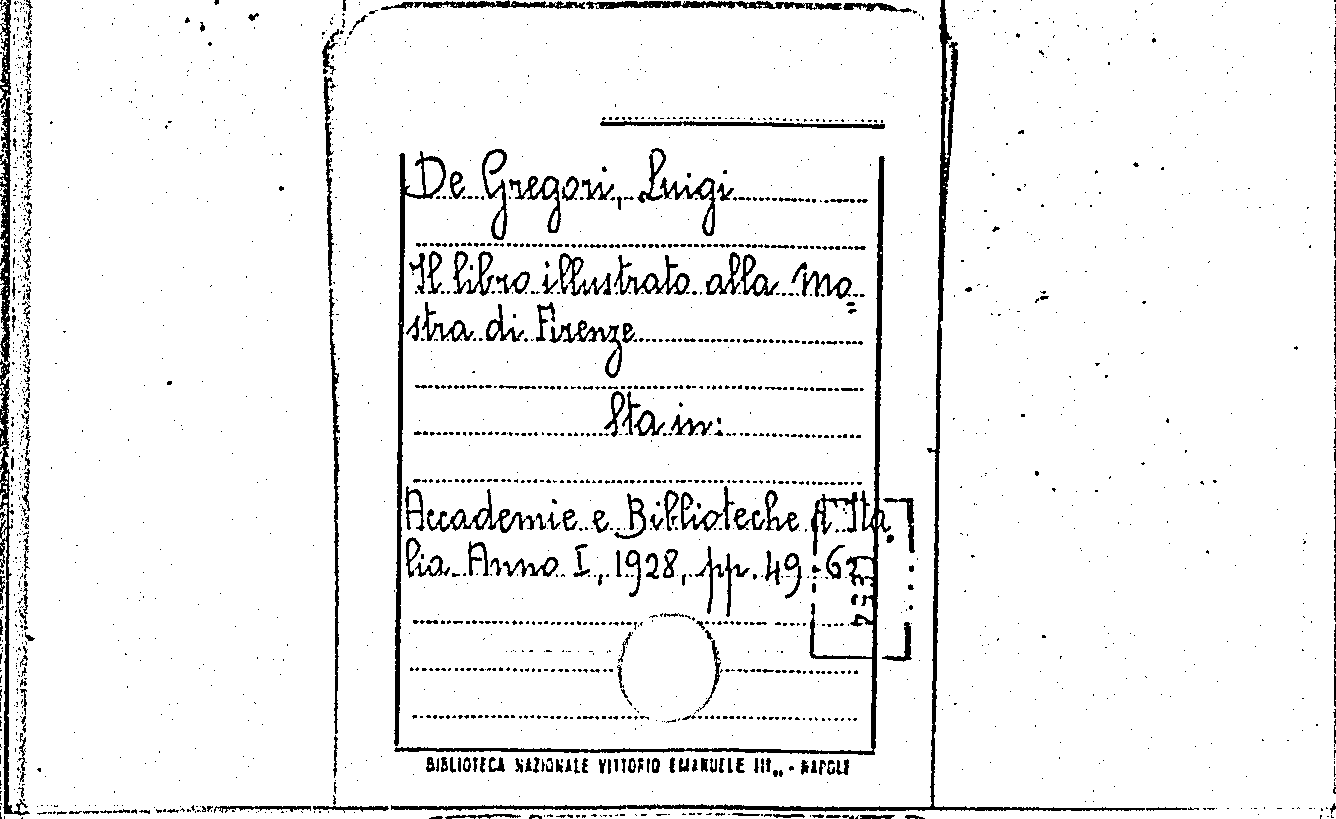 De Gregori, Luigi
Il libro illustrato alla Mo=
stra di Firenze
Sta in:
Accademie e Biblioteche d'Ita.
lia. Anno I, 1928, pp. 49-
BIBLIOTECA NAZIONALE VITTORIO EMANUELE III„ - NAPOLI